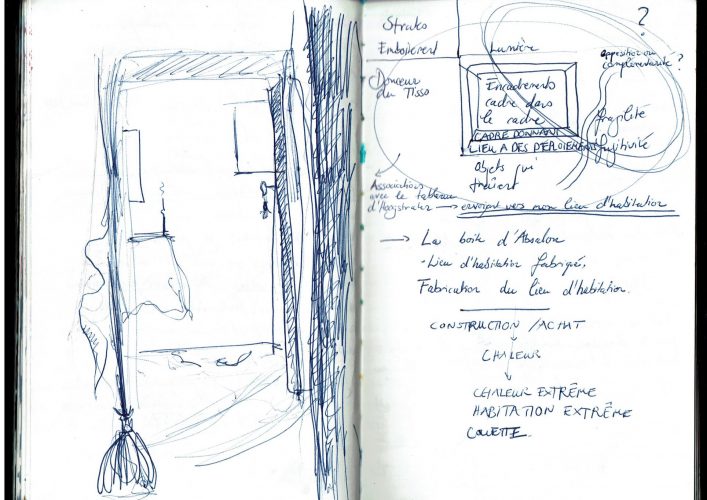 Strates
Emboîtement
Lumière
?
opposition ou
complémentarité ?
Douceur
du Tisso
Encadrements
cadre dans
le cadre
CADRE DONNANT
LIEU A DES DÉPLOIEMENTS
fragilité
fugitivité
objets qui
traînent
Associations
avec le tableau
→ envoyant vers mon lieu d'habitation
→ La boîte d'Absalon
- Lieu d'habitation fabriqué,
Fabrication du lieu d'habitation.
CONSTRUCTION / ACHAT
CHALEUR
CHALEUR EXTRÊME
HABITATION EXTRÊME
COUETTE.